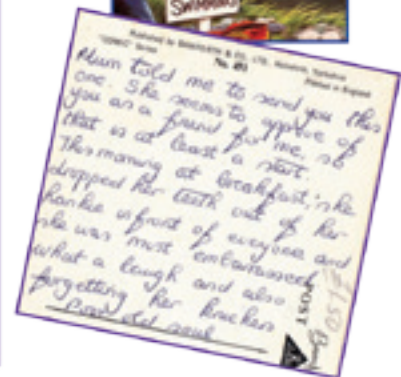 SWIMMING
Published by BAMFORTH & CO., LTD., Holmfirth, Yorkshire
"COMIC" Series No. Printed in England
Mum told me to send you this
one. She seems to approve of
you as a friend for me, so
that is at least a start.
This morning at breakfast, she
dropped her teeth out of her
hankie infront of everyone and
she was most embarrassed
what a laugh and also
forgetting her knickers
Poor old soul
POST